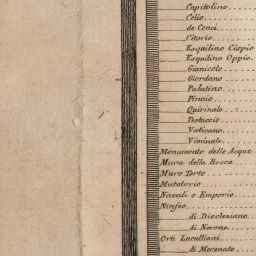 Capitolino
Celio
de Cenci
Citorio
Esquilino Cispio
Esquilino Oppio
Gianicolo
Giordano
Palatino
Pincio
Quirinale
Testaccio
Vaticano
Viminale
Monumento delle Acque
Mura della Rocca
Muro Torto
Mutatorio
Navali o Emporio
Ninfeo
di Diocleziano
di Nerone
Orti Luculliani
di Mecenate